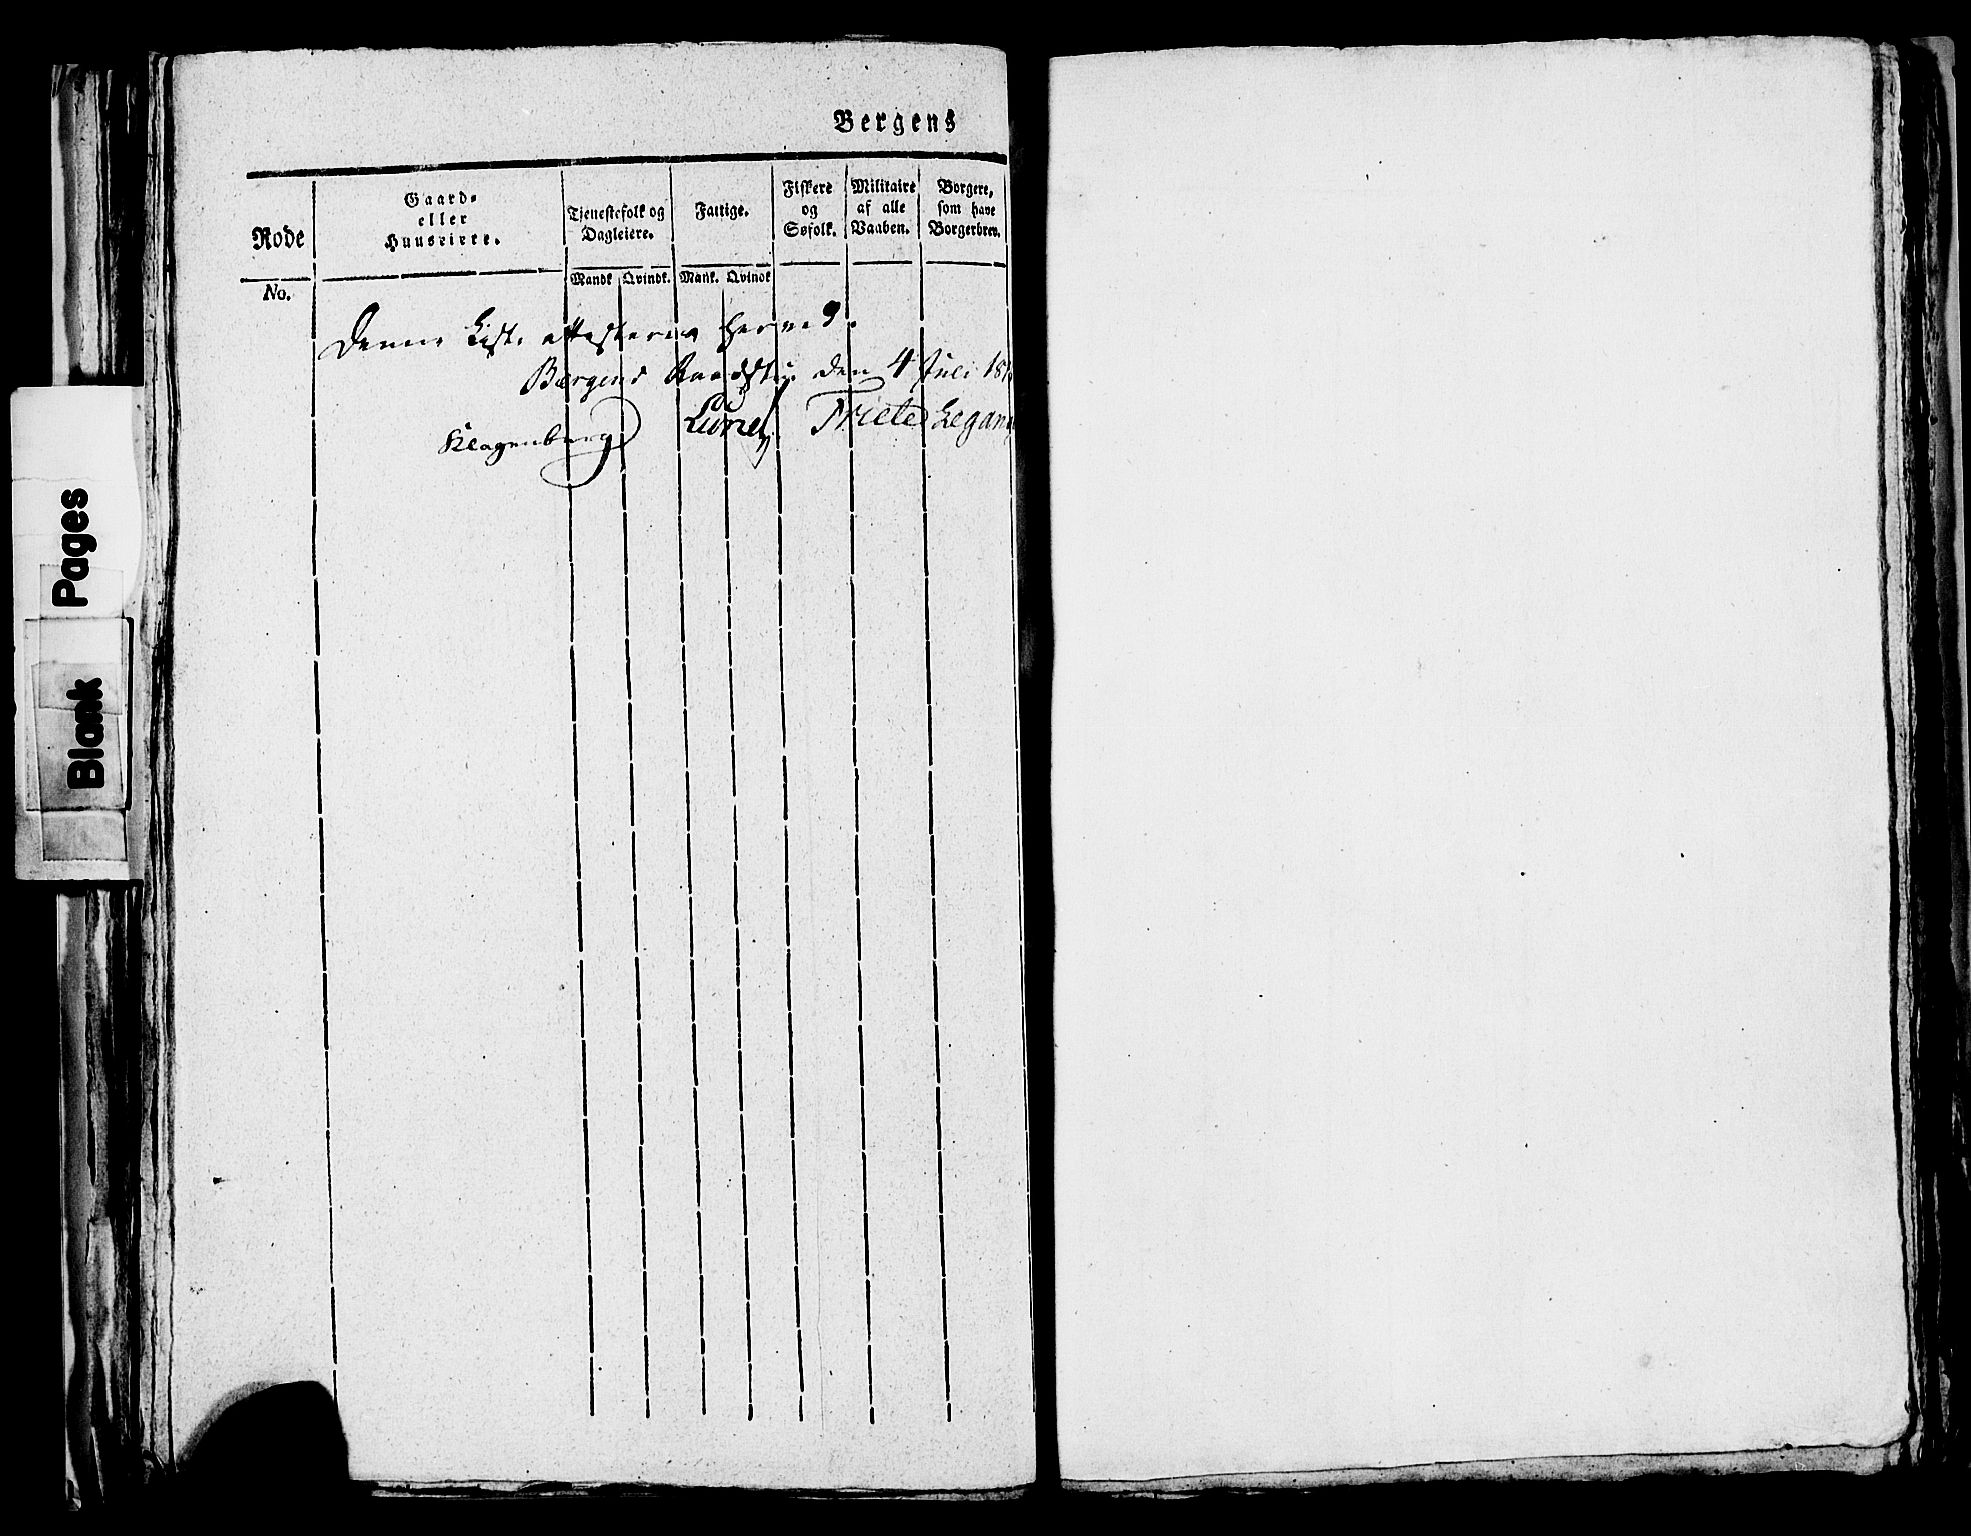 Bergens
Rode
No.
Gaard-
eller
Huuseiere.
Tjenestefolk og
Dagleiere.
Mandk Qvindk.
Fattige.
Mank. Qvindk
Fiskere
og
Søfolk.
Militaire
af alle
Vaaben.
Borgere,
som have
Borgerbrev.
Denne Liste attesteres herved.
Bergens Raadstue den 4 Juli 181
Klagenberg Friele Legang
Blank Pages